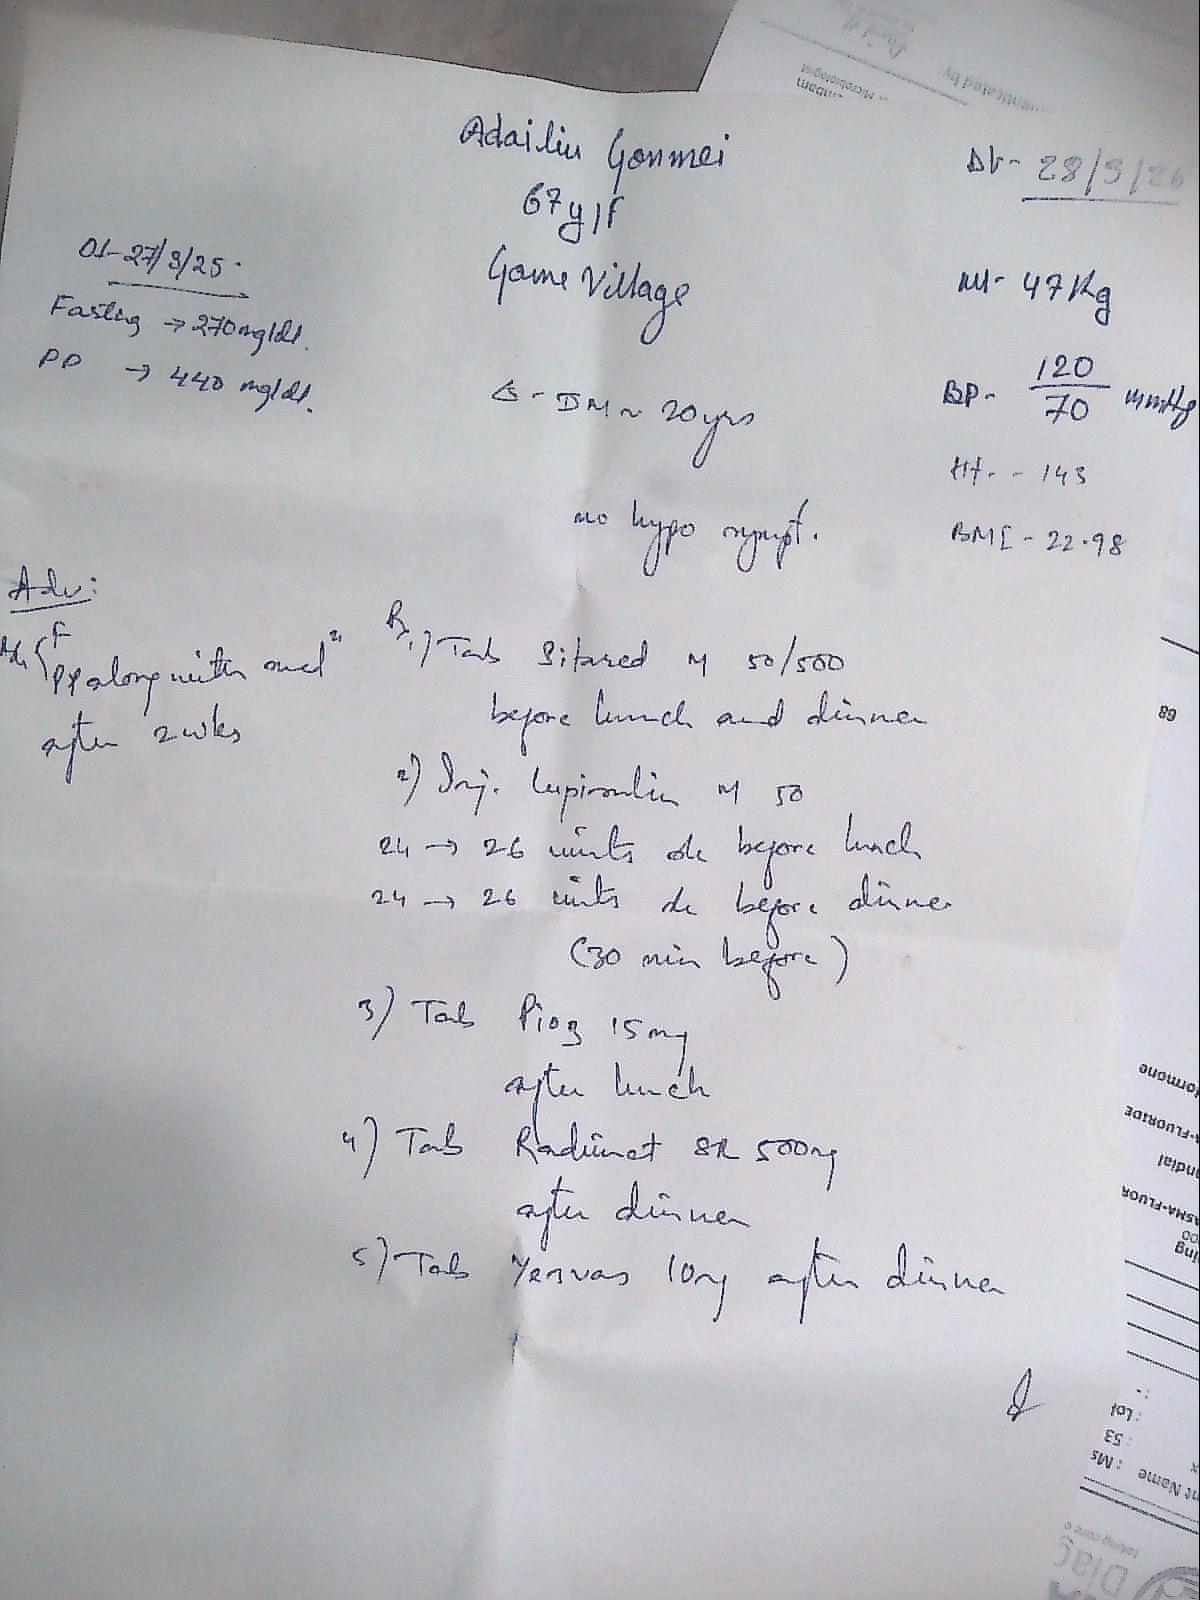 Adailiu Gonmei
67y/F
Game Village
Dt- 28/3/2
Dt- 27/3/25
Fasting → 270mg/dl.
PP → 440 mg/dl.
Wt- 47Kg
BP- 120/70 mmHg
Ht. - 143
BMI - 22.98
Δ - DM ~ 20yrs
no hypo sympt.
Adv:
F
PP along with med
after 2wks
Rx
1) Tab Sitared M 50/500
before lunch and dinner
2) Inj. Lupinsulin M 50
24 → 26 units before lunch
24 → 26 units before dinner
(30 min before)
3) Tab Pioz 15mg
after lunch
4) Tab SR 500mg
after dinner
5) Tab 10mg after dinner
68
Hormone
A-FLUORIDE
ASMA-FLUOR
: 53
: Ms
nt Name
Diag
Microbiologist